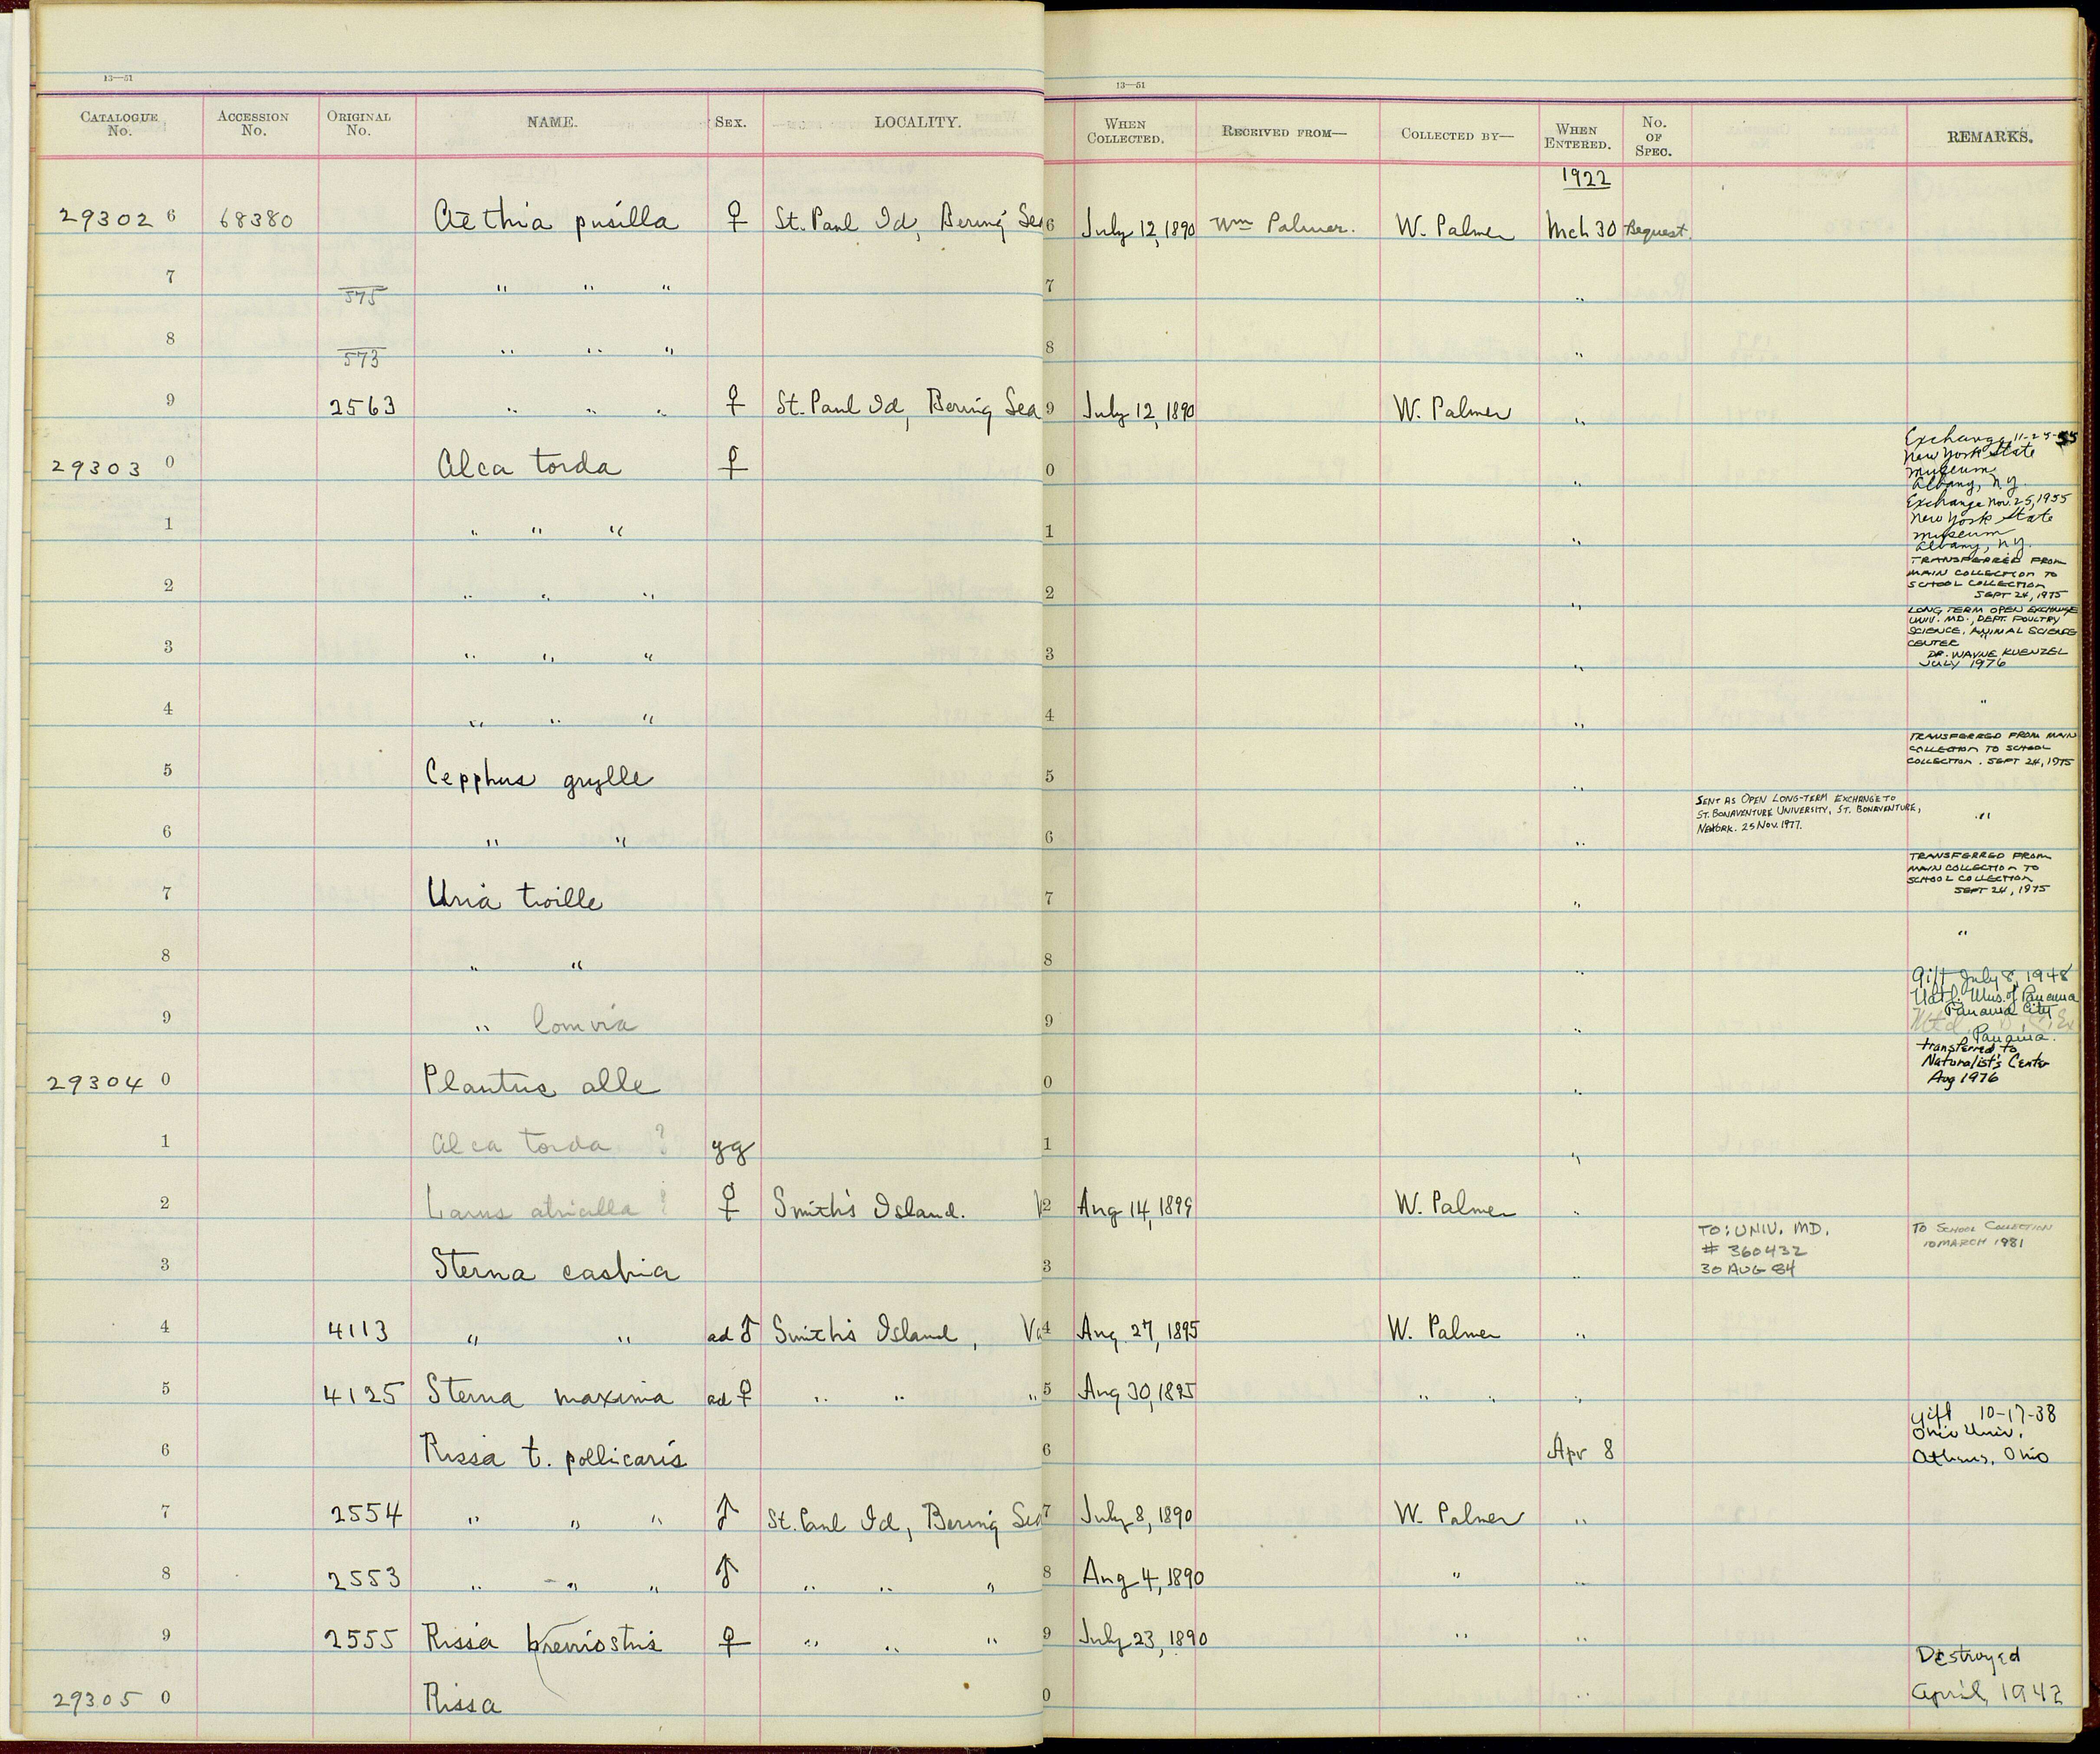 13—51
13—51
CATALOGUE No. ACCESSION No. ORIGINAL No. NAME. SEX. LOCALITY. WHEN COLLECTED. RECEIVED FROM— COLLECTED BY— WHEN ENTERED. No. OF SPEC. REMARKS.
1922
29302 6 68380 Aethia pusilla ♀ St. Paul Id, Bering Sea 6 July 12, 1890 Wm Palmer. W. Palmer Mch 30 Bequest.
7 575 " " " 7 "
8 573 " " " 8 "
9 2563 " " " ♀ St. Paul Id, Bering Sea 9 July 12, 1890 W. Palmer "
29303 0 Alca torda ♀ 0 " Exchange 11-25-55
New York State
Museum
Albany, N.Y.
1 " " " 1 " Exchange Nov. 25, 1955
New York State
Museum
Albany, N.Y.
2 " " " 2 " TRANSFERRED FROM
MAIN COLLECTION TO
SCHOOL COLLECTION
SEPT 24, 1975
3 " " " 3 " LONG TERM OPEN EXCHANGE
UNIV. MD., DEPT. POULTRY
SCIENCE, ANIMAL SCIENCE
CENTER
DR. WAYNE KUENZEL
JULY 1976
4 " " " 4 " "
5 Cepphus grylle 5 " TRANSFERRED FROM MAIN
COLLECTION TO SCHOOL
COLLECTION. SEPT 24, 1975
6 " " 6 " SENT AS OPEN LONG-TERM EXCHANGE TO
ST. BONAVENTURE UNIVERSITY, ST. BONAVENTURE,
NEWYORK. 25 NOV. 1977. "
7 Uria troille 7 " TRANSFERRED FROM
MAIN COLLECTION TO
SCHOOL COLLECTION
SEPT 24, 1975
8 " " 8 " "
9 " lomvia 9 " Gift July 8, 1948
Natl. Mus. of Panama
Panama City
Panama.
29304 0 Plautus alle 0 " transferred to
Naturalist's Center
Aug 1976
1 Alca torda ? yg 1 "
2 Larus atricilla ? ♀ Smith's Island. V 2 Aug 14, 1899 W. Palmer "
3 Sterna caspia 3 " TO: UNIV. MD.
# 360432
30 AUG 84 TO SCHOOL COLLECTION
10 MARCH 1981
4 4113 " " ad ♂ Smith's Island, Va 4 Aug. 27, 1895 W. Palmer "
5 4125 Sterna maxima ad ♀ " " " 5 Aug 30, 1895 " " "
6 Rissa t. pollicaris 6 Apr 8 gift 10-17-38
Ohio Univ.
Athens, Ohio
7 2554 " " " ♂ St. Paul Id, Bering Sea 7 July 8, 1890 W. Palmer "
8 2553 " " " ♂ " " " 8 Aug 4, 1890 " "
9 2555 Rissa brevirostris ♀ " " " 9 July 23, 1890 " "
29305 0 Rissa 0 " Destroyed
April, 1942